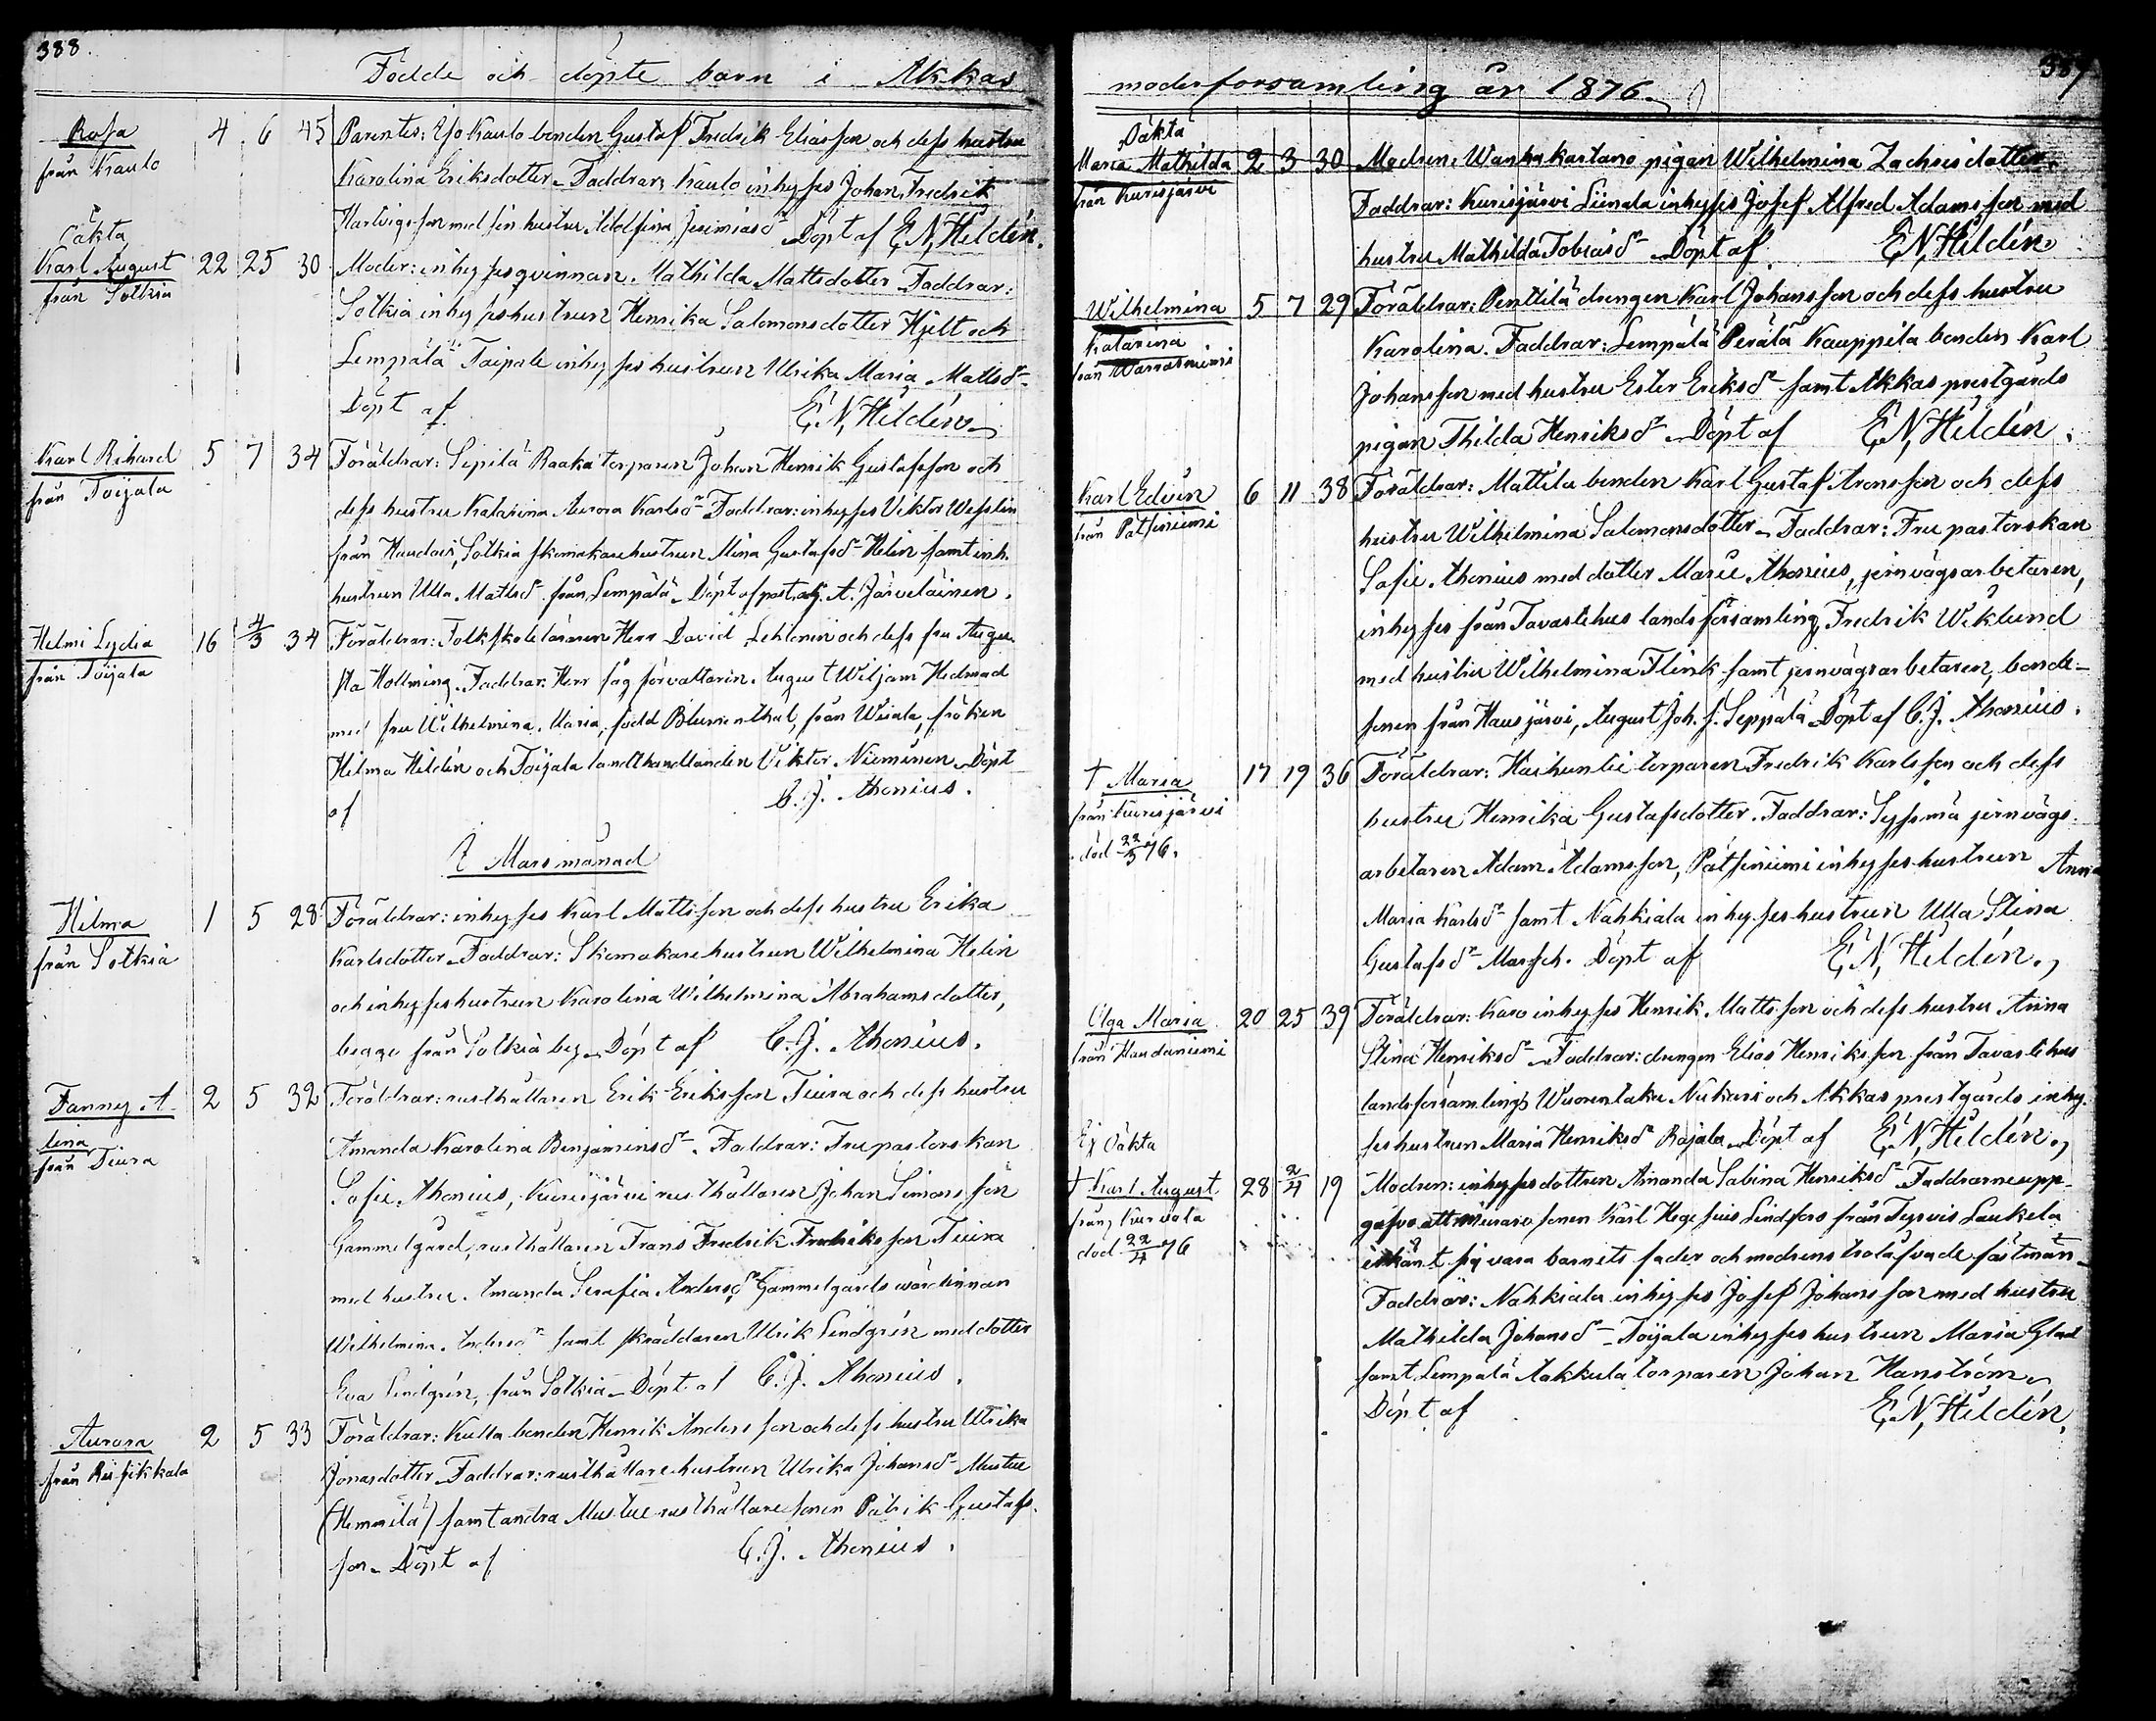 388.
Födde och döpte barn i Akkas
Rosa
från Kaulo
4 6 45
Parenter: Yso Kaulo bonden Gustaf Fredrik Eliasson och dess hustru
Karolina Eriksdotter. Faddrar: Kaulo inhyses Johan Fredrik
Hartvigsson med sin hustru Adolfina Jeremiasdr Döpt af E. N. Hildén.
Oäkta
Karl August
från Sotkia
22 25 30
Moder: inhysesqvinnan Mathilda Mattsdotter Faddrar:
Sotkia inhyseshustrun Henrika Salomonsdotter Hjelt och
Lempälä Taipale inhyses hustrun Ulrika Maria Mattsdr
Döpt af E. N. Hildén
Karl Rikard
från Toijala
5 7 34
Föräldrar: Sepilä Raaka torparen Johan Henrik Gustafsson och
dess hustru Katarina Aurora Karlsdr Faddrar: inhyses Viktor Wesslin
från Haudois, Sotkia skomakarehustrun Mina Gustafsdr Helin samt inh.
hustrun Ulla Mattsd. från Lempälä. Döpt af past. adj. A. Järveläinen.
Helmi Lydia
från Toijala
16 4/3 34
Föräldrar: Folkskoleläraren Herr David Lehlonen och dess fru Augu-
sta Hollming. Faddrar: Herr sågförvaltaren August Wiljam Hedman
med fru Wilhelmina Maria, född Blumenthal, från Wiiala, fröken
Hilma Hildén och Toijala landthandlanden Viktor Nieminen Döpt
af C. J. Ahonius.
I Mars månad
Hilma
från Sotkia
1 5 28
Föräldrar: inhyses Karl Mattsson och dess hustru Erika
Karlsdotter. Faddrar: Skomakarehustrun Wilhelmina Helin
och inhyseshustrun Karolina Wilhelmina Abrahamsdotter,
begge från Sotkia by. Döpt af C. J. Ahonius.
Fanny A-
lina
från Tiura
2 5 32
Föräldrar: rusthållaren Erik Eriksson Tiura och dess hustru
Amanda Karolina Benjaminsdr. Faddrar: Fru pastorskan
Sofie Ahonius, Kurisjärvi rusthållaren Johan Simonsson
Gammelgård, rusthållaren Frans Fredrik Fredriksson Tiura
med hustru Amanda Serafia Andersdr Gammelgårds wärdinnan
Wilhelmina Andersdr samt skräddaren Ulrik Lindgrén med dotter
Eva Lindgrén, från Sotkia. Döpt af C. J. Ahonius.
Aurora
från Risikkala
2 5 33
Föräldrar: Kulla bonden Henrik Andersson och dess hustru Ulrika
Jonasdotter Faddrar: rusthållarehustrun Ulrika Johansdr Mustue
(Hemmilä) samt andra Mustue rusthållaresonen Patrik Gustafs-
son. Döpt af C. J. Ahonius.
389
moderforsamling år 1876.
Oäkta
Maria Mathilda
från Kurisjärvi
2 3 30
Modren: Wanhakartano pigan Wilhelmina Zachrisdotter.
Faddrar: Kurisjärvi Liimala inhyses Josef Alfred Adamsson med
hustru Mathilda Tobiasdr Döpt af E. N. Hildén.
Wilhelmina
Katarina
från Warrasniemi
5 7 29
Föräldrar: Penttilä drengen Karl Johansson och dess hustru
Karolina. Faddrar: Lempälä Perälä Kauppila bonden Karl
Johansson med hustru Ester Eriksdr samt Akkas prestgårds
pigan Thilda Henriksdr Döpt af E. N. Hildén.
Karl Edvin
från Patsniemi
6 11 38
Föräldrar: Mattila bonden Karl Gustaf Aronsson och dess
hustru Wilhelmina Salomonsdotter. Faddrar: Fru pastorskan
Sofie Ahonius med dotter Marie Ahonius, jernvägsarbetaren,
inhyses från Tavastehus landsförsamling Fredrik Wiklund
med hustru Wilhelmina Flink samt jernvägsarbetaren, bonde-
sonen från Hausjärvi, August Joh. s. Seppälä Döpt af C. J. Ahonius.
† Maria
från Kurisjärvi
död 22/3 76.
17 19 36
Föräldrar: Haihuntie torparen Fredrik Karlsson och dess
hustru Henrika Gustafsdotter. Faddrar: Syssmä jernvägs
arbetaren Adam Adamsson, Patsniemi inhyseshustrun Anna
Maria Karlsdr samt Nahkiala inhyseshustrun Ulla Stina
Gustafsdr Marsch. Döpt af E. N. Hildén.
Olga Maria
från Haudaniemi
20 25 39
Föräldrar: Karo inhyses Henrik Mattsson och dess hustru Anna
Stina Henriksdr Faddrar: drengen Elias Henriksson från Tavastehus
landsförsamlings Wuorentaka Nukari och Akkas prestgårds inhy-
seshustrun Maria Henriksdr Rajala. Döpt af E. N. Hildén.
Ej Oäkta
† Karl August
från Kurvola
död 22/4 76
28 2/4 19
Modren: inhysesdottren Amanda Sabina Henriksdr Faddrarne upp-
gåfvo att muraresonen Karl Hegesius Lindfors från Tyrvis Laukula
erkänt sig vara barnets fader och modrens trolofvade fästman.
Faddrar: Nahkiala inhyses Josef Johansson med hustru
Mathilda Johansdr Toijala inhyseshustrun Maria Glad
samt Lempälä Aakkula torparen Johan Hanström.
Döpt af E. N. Hildén.